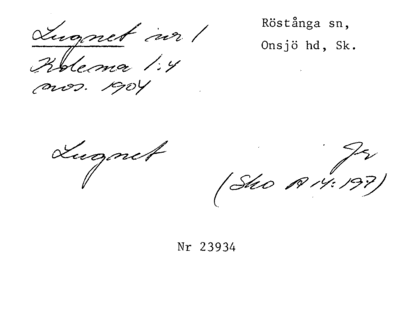 Lugnet nr 1
Röstånga sn,
Onsjö hd, Sk.
1:4
1904
Lugnet
Jr
(Sko A 14:197)
Nr 23934